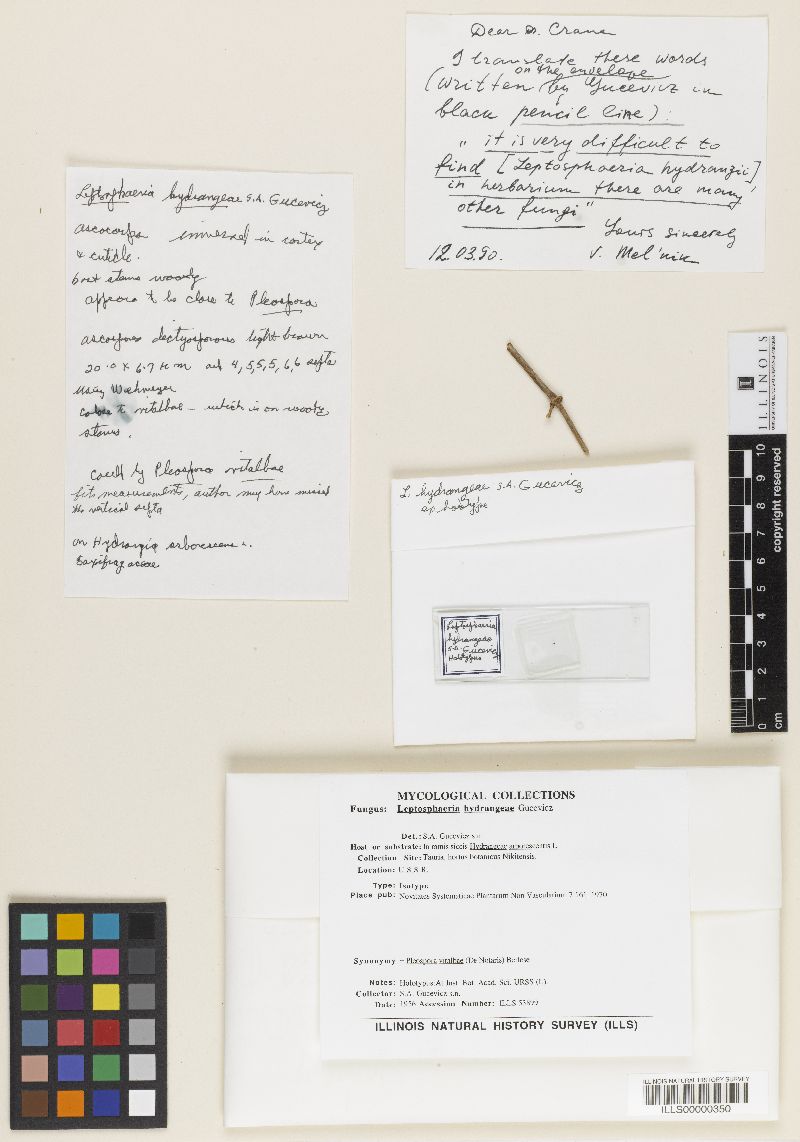 Dear Dr. Crane
I translate these words
on the envelope
(written by Gucevicz in
black pencil line):
" it is very difficult to
find [Leptosphaeria hydrangii]
in herbarium there are many
other fungi"
Yours sincerely
12.03.90. V. Mel'nik
Leptosphaeria hydrangeae S.A. Gucevicz
ascocarps immersed in cortex
& cuticle.
host stems woody
appears to be close to Pleospora
ascospores dictyosporous light brown
20.0 x 6.7 um and 4, 5, 5, 5, 6, 6 septa
using Wehmeyer
close to vitalbae - which is on woody
stems.
could be Pleospora vitalbae
fits measurements, author may have missed
the vertical septa
on Hydrangia arborescens L.
Saxifragaceae
L. hydrangeae S.A. Gucevicz
ex holotype
Leptosphaeria
hydrangeae
S.A. Gucevicz
Holotypus
ILLINOIS
copyright reserved
0 1 2 3 4 5 6 7 8 9 10
cm
MYCOLOGICAL COLLECTIONS
Fungus: Leptosphaeria hydrangeae Gucevicz
Det.: S.A. Gucevicz s.n.
Host or substrate: In ramis siccis Hydrangeae arborescentis L.
Collection Site: Tauria, hortus botanicus Nikitensis.
Location: U.S.S.R.
Type: Isotype
Place pub: Novitates Systematicae Plantarum Non Vascularium 7:161 1970
Synonymy = Pleospora vitalbae (De Notaris) Berlese
Notes: Holotypus At Inst. Bot. Acad. Sci. URSS (L.)
Collector: S.A. Gucevicz s.n.
Date: 1956 Accession Number: ILLS 53899
ILLINOIS NATURAL HISTORY SURVEY (ILLS)
ILLINOIS NATURAL HISTORY SURVEY
ILLS00000350